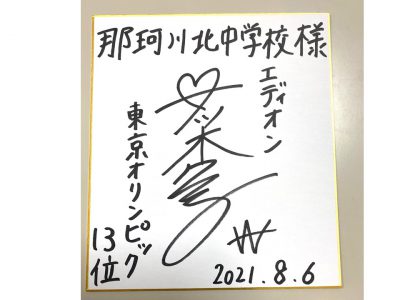 那珂川北中学校様
エディオン
東京オリンピック
13位
2021.8.6